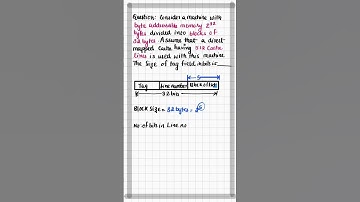 Question: Consider a machine with
byte addressable memory 2³²
bytes divided into blocks of
32 bytes. Assume that a direct
mapped Cache having 512 Cache
Lines is used with this machine.
The size of Tag field in bits is
5
Tag Line number
32 bits
Block Size = 32 bytes = 2⁵
No of bits in Line no